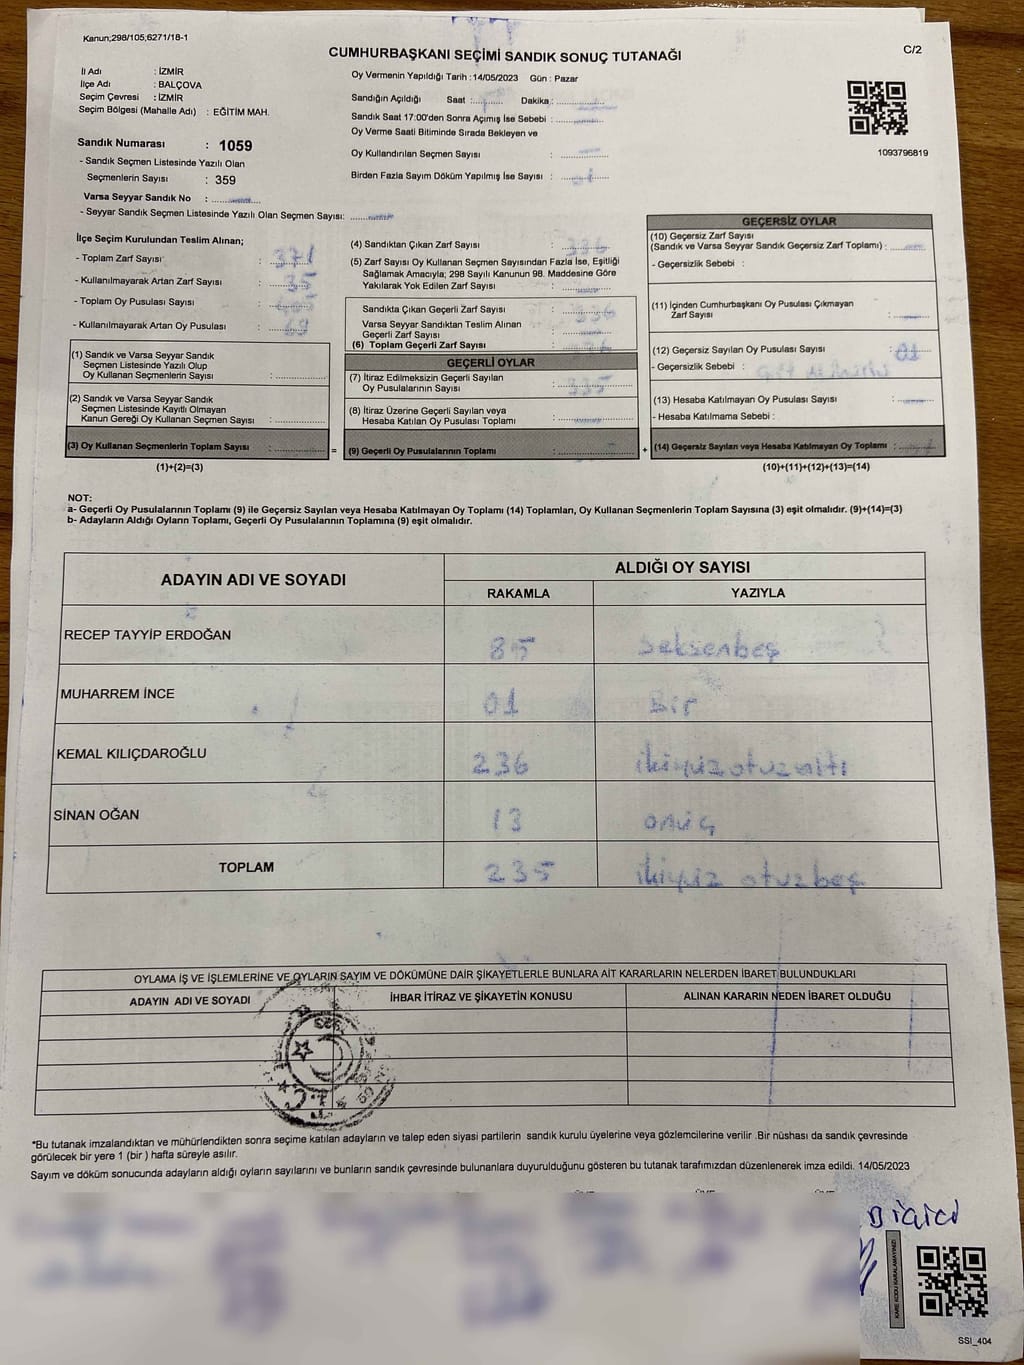 Kanun;298/105,6271/18-1
CUMHURBAŞKANI SEÇİMİ SANDIK SONUÇ TUTANAĞI
C/2
İl Adı : İZMİR
İlçe Adı : BALÇOVA
Seçim Çevresi : İZMİR
Seçim Bölgesi (Mahalle Adı) : EĞİTİM MAH.
Sandık Numarası : 1059
- Sandık Seçmen Listesinde Yazılı Olan
Seçmenlerin Sayısı : 359
Varsa Seyyar Sandık No :
- Seyyar Sandık Seçmen Listesinde Yazılı Olan Seçmen Sayısı:
Oy Vermenin Yapıldığı Tarih :14/05/2023 Gün : Pazar
Sandığın Açıldığı Saat : Dakika :
Sandık Saat 17:00'den Sonra Açımış İse Sebebi :
Oy Verme Saati Bitiminde Sırada Bekleyen ve
Oy Kullandırılan Seçmen Sayısı :
Birden Fazla Sayım Döküm Yapılmış İse Sayısı : 01
1093796819
İlçe Seçim Kurulundan Teslim Alınan;
- Toplam Zarf Sayısı : 371
- Kullanılmayarak Artan Zarf Sayısı : 35
- Toplam Oy Pusulası Sayısı : 405
- Kullanılmayarak Artan Oy Pusulası : 69
(1) Sandık ve Varsa Seyyar Sandık
Seçmen Listesinde Yazılı Olup
Oy Kullanan Seçmenlerin Sayısı :
(2) Sandık ve Varsa Seyyar Sandık
Seçmen Listesinde Kayıtlı Olmayan
Kanun Gereği Oy Kullanan Seçmen Sayısı :
(3) Oy Kullanan Seçmenlerin Toplam Sayısı :
(1)+(2)=(3)
(4) Sandıktan Çıkan Zarf Sayısı : 336
(5) Zarf Sayısı Oy Kullanan Seçmen Sayısından Fazla İse, Eşitliği
Sağlamak Amacıyla; 298 Sayılı Kanunun 98. Maddesine Göre
Yakılarak Yok Edilen Zarf Sayısı :
Sandıkta Çıkan Geçerli Zarf Sayısı : 336
Varsa Seyyar Sandıktan Teslim Alınan
Geçerli Zarf Sayısı :
(6) Toplam Geçerli Zarf Sayısı :
GEÇERLİ OYLAR
(7) İtiraz Edilmeksizin Geçerli Sayılan
Oy Pusulalarının Sayısı : 335
(8) İtiraz Üzerine Geçerli Sayılan veya
Hesaba Katılan Oy Pusulası Toplamı :
= (9) Geçerli Oy Pusulalarının Toplamı :
GEÇERSİZ OYLAR
(10) Geçersiz Zarf Sayısı
(Sandık ve Varsa Seyyar Sandık Geçersiz Zarf Toplamı) :
- Geçersizlik Sebebi :
(11) İçinden Cumhurbaşkanı Oy Pusulası Çıkmayan
Zarf Sayısı :
(12) Geçersiz Sayılan Oy Pusulası Sayısı : 01
- Geçersizlik Sebebi :
(13) Hesaba Katılmayan Oy Pusulası Sayısı :
- Hesaba Katılmama Sebebi :
+ (14) Geçersiz Sayılan veya Hesaba Katılmayan Oy Toplamı :
(10)+(11)+(12)+(13)=(14)
NOT:
a- Geçerli Oy Pusulalarının Toplamı (9) ile Geçersiz Sayılan veya Hesaba Katılmayan Oy Toplamı (14) Toplamları, Oy Kullanan Seçmenlerin Toplam Sayısına (3) eşit olmalıdır. (9)+(14)=(3)
b- Adayların Aldığı Oyların Toplamı, Geçerli Oy Pusulalarının Toplamına (9) eşit olmalıdır.
ADAYIN ADI VE SOYADI
ALDIĞI OY SAYISI
RAKAMLA YAZIYLA
RECEP TAYYİP ERDOĞAN 85 Seksenbeş
MUHARREM İNCE 01 Bir
KEMAL KILIÇDAROĞLU 236 ikiyüzotuzaltı
SİNAN OĞAN 13 onüç
TOPLAM 235 ikiyüz otuzbeş
OYLAMA İŞ VE İŞLEMLERİNE VE OYLARIN SAYIM VE DÖKÜMÜNE DAİR ŞİKAYETLERLE BUNLARA AİT KARARLARIN NELERDEN İBARET BULUNDUKLARI
ADAYIN ADI VE SOYADI İHBAR İTİRAZ VE ŞİKAYETİN KONUSU ALINAN KARARIN NEDEN İBARET OLDUĞU
T.C.
*Bu tutanak imzalandıktan ve mühürlendikten sonra seçime katılan adayların ve talep eden siyasi partilerin sandık kurulu üyelerine veya gözlemcilerine verilir .Bir nüshası da sandık çevresinde
görülecek bir yere 1 (bir ) hafta süreyle asılır.
Sayım ve döküm sonucunda adayların aldığı oyların sayılarını ve bunların sandık çevresinde bulunanlara duyurulduğunu gösteren bu tutanak tarafımızdan düzenlenerek imza edildi. 14/05/2023
KARE KODU KARALAMAYINIZ!
SSI_404